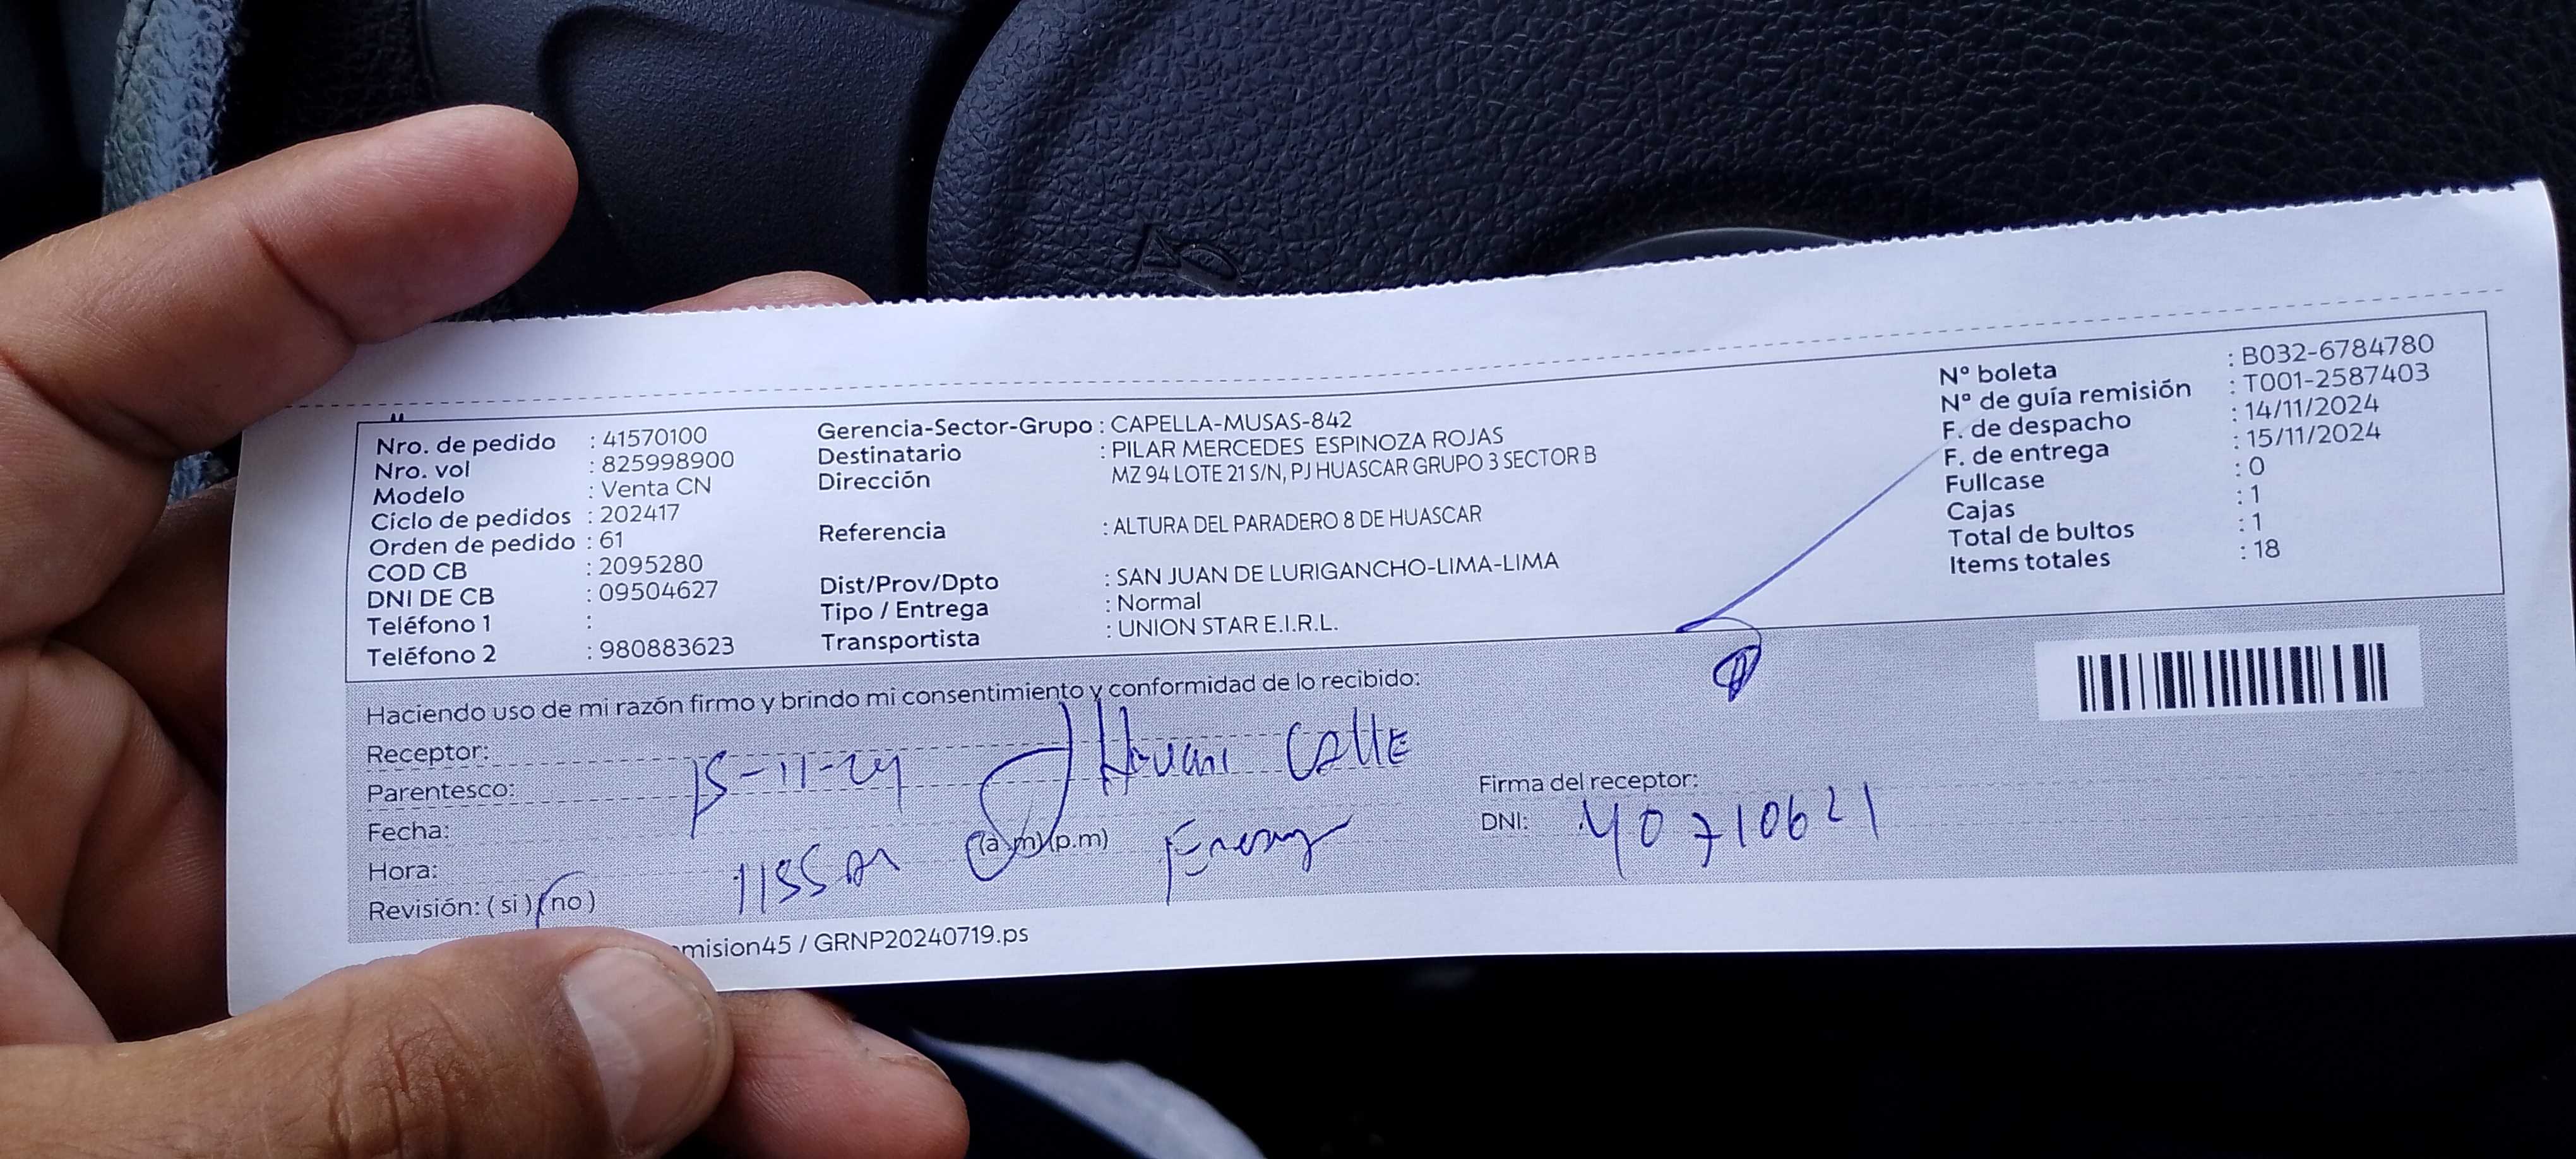 Nro. de pedido : 41570100
Nro. vol : 825998900
Modelo : Venta CN
Ciclo de pedidos : 202417
Orden de pedido : 61
COD CB : 2095280
DNI DE CB : 09504627
Teléfono 1 :
Teléfono 2 : 980883623
Gerencia-Sector-Grupo : CAPELLA-MUSAS-842
Destinatario : PILAR MERCEDES ESPINOZA ROJAS
Dirección MZ 94 LOTE 21 S/N, PJ HUASCAR GRUPO 3 SECTOR B
Referencia : ALTURA DEL PARADERO 8 DE HUASCAR
Dist/Prov/Dpto : SAN JUAN DE LURIGANCHO-LIMA-LIMA
Tipo / Entrega : Normal
Transportista : UNION STAR E.I.R.L.
Nº boleta : B032-6784780
Nº de guía remisión : T001-2587403
F. de despacho : 14/11/2024
F. de entrega : 15/11/2024
Fullcase : 0
Cajas : 1
Total de bultos : 1
Items totales : 18
Haciendo uso de mi razón firmo y brindo mi consentimiento y conformidad de lo recibido:
Receptor:
Parentesco: 15-11-24 Calle
Fecha:
Hora: (a.m)(p.m)
Revisión: ( si ) (no )
Firma del receptor:
DNI: 40710621
mision45 / GRNP20240719.ps